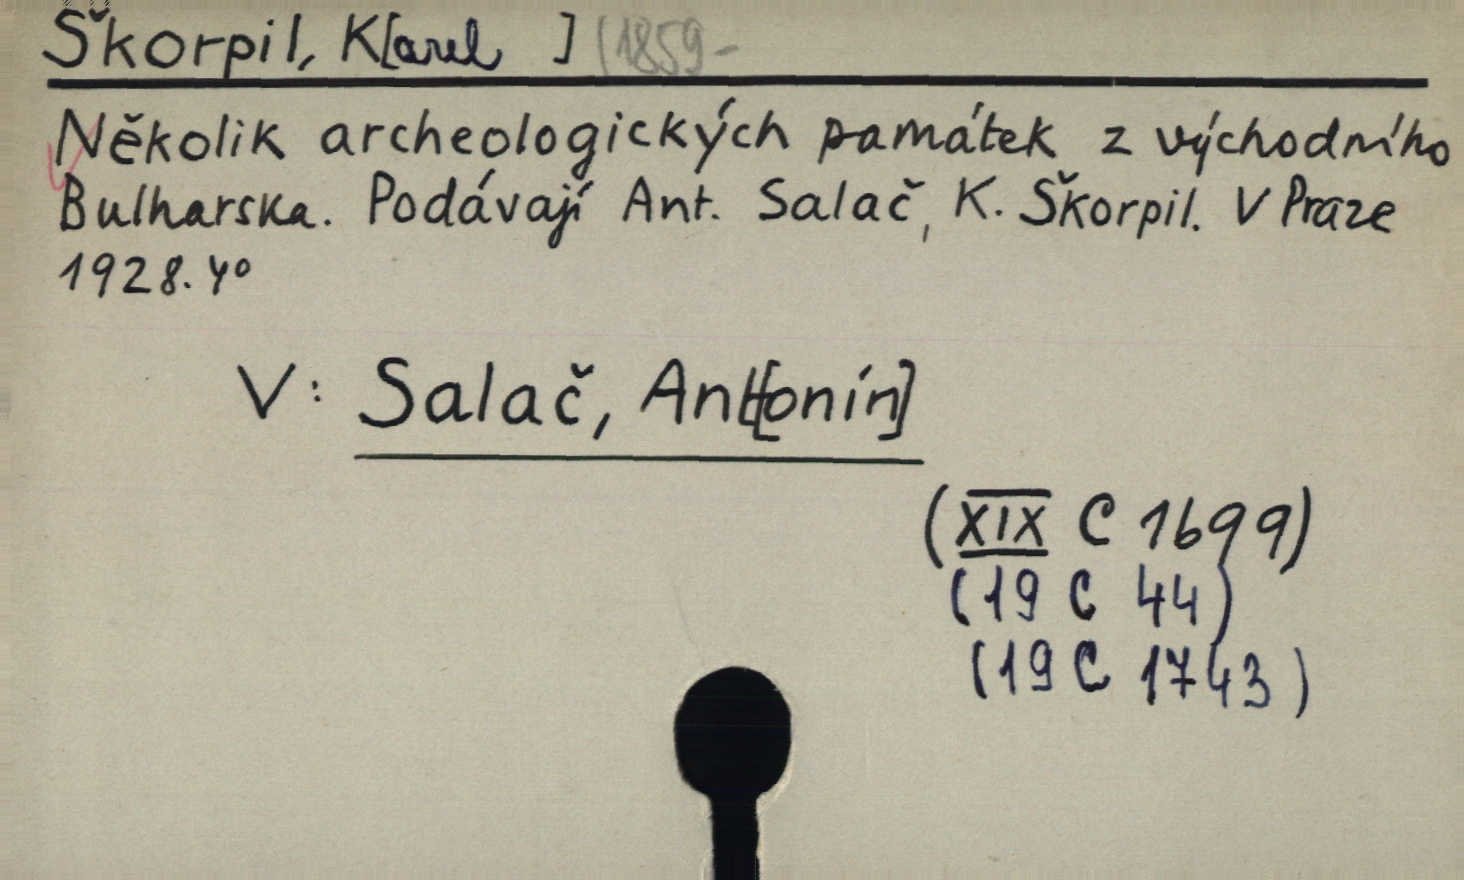 Škorpil, K[arel ] (1859-
Několik archeologických památek z východního
Bulharska. Podávají Ant. Salač, K. Škorpil. V Praze
1928. 4°
V: Salač, Ant[onín]
(XIX C 1699)
(19 C 44)
(19 C 1743)